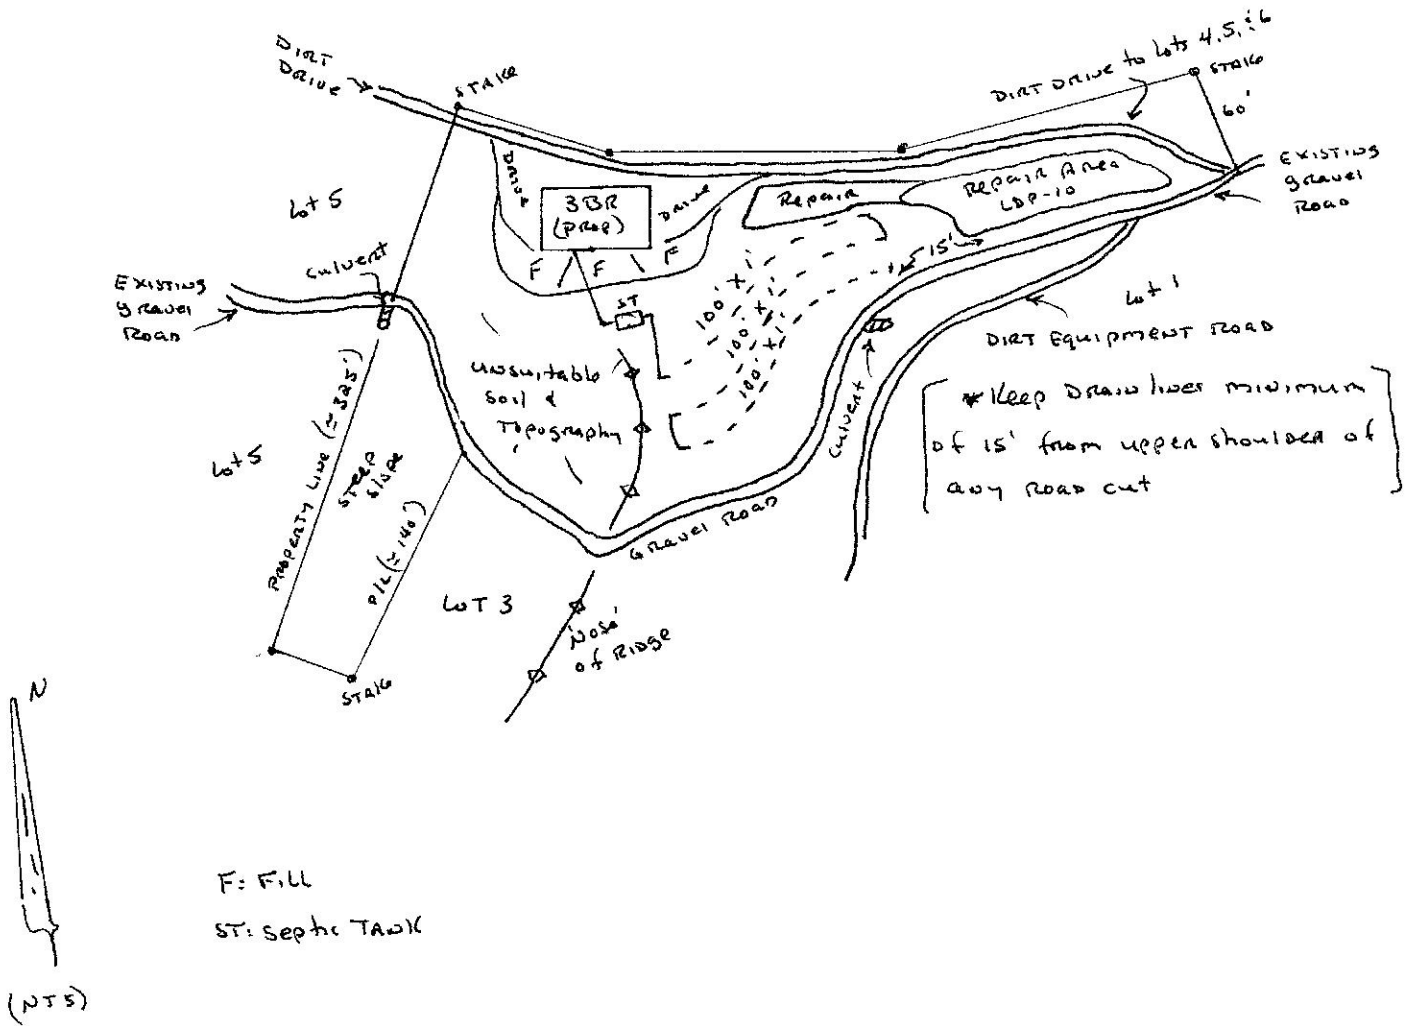 DIRT
DRIVE
STAKE
DIRT DRIVE to Lots 4,5,&6
STAKE
60'
EXISTING
gravel
ROAD
Lot 5
DRIVE
3BR
(PROP)
DRIVE
Repair
Repair Area
LDP-10
F
F
F
15'
culvert
EXISTING
gravel
ROAD
ST
100'
100'
100'
Lot 1
DIRT EQUIPMENT ROAD
unsuitable
soil &
Topography
culvert
*Keep DRAIN lines minimum
of 15' from upper shoulder of
any ROAD cut
Lot 5
PROPERTY LINE (≃325')
STEEP
slope
P/L (≃140')
GRAVEL ROAD
LOT 3
'Nose'
of RIDGE
STAKE
N
F: FILL
ST: Septic TANK
(NTS)